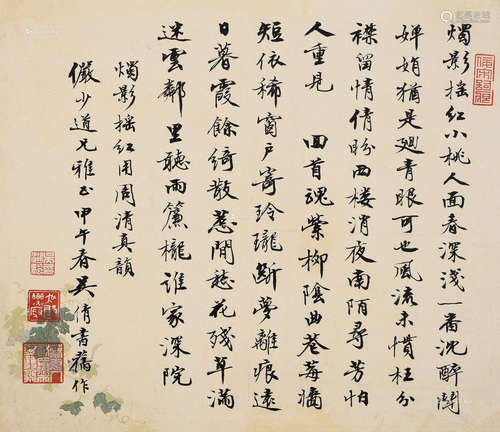 燭影搖紅小桃人面春深淺一番沈醉鬥
嬋娟猶是廻青眼可也風流未慣枉分
襟留情倩盼西樓消夜南陌尋芳怕
人重見 回首魂縈柳陰曲巷莓牆
短依稀窗戶寄玲瓏斷夢離痕遠
日暮霞餘綺散惹閒愁花殘草滿
迷雲鄰里聽雨簾櫳誰家深院
燭影搖紅用周清真韻
儼少道兄雅正甲午春吳倩書舊作